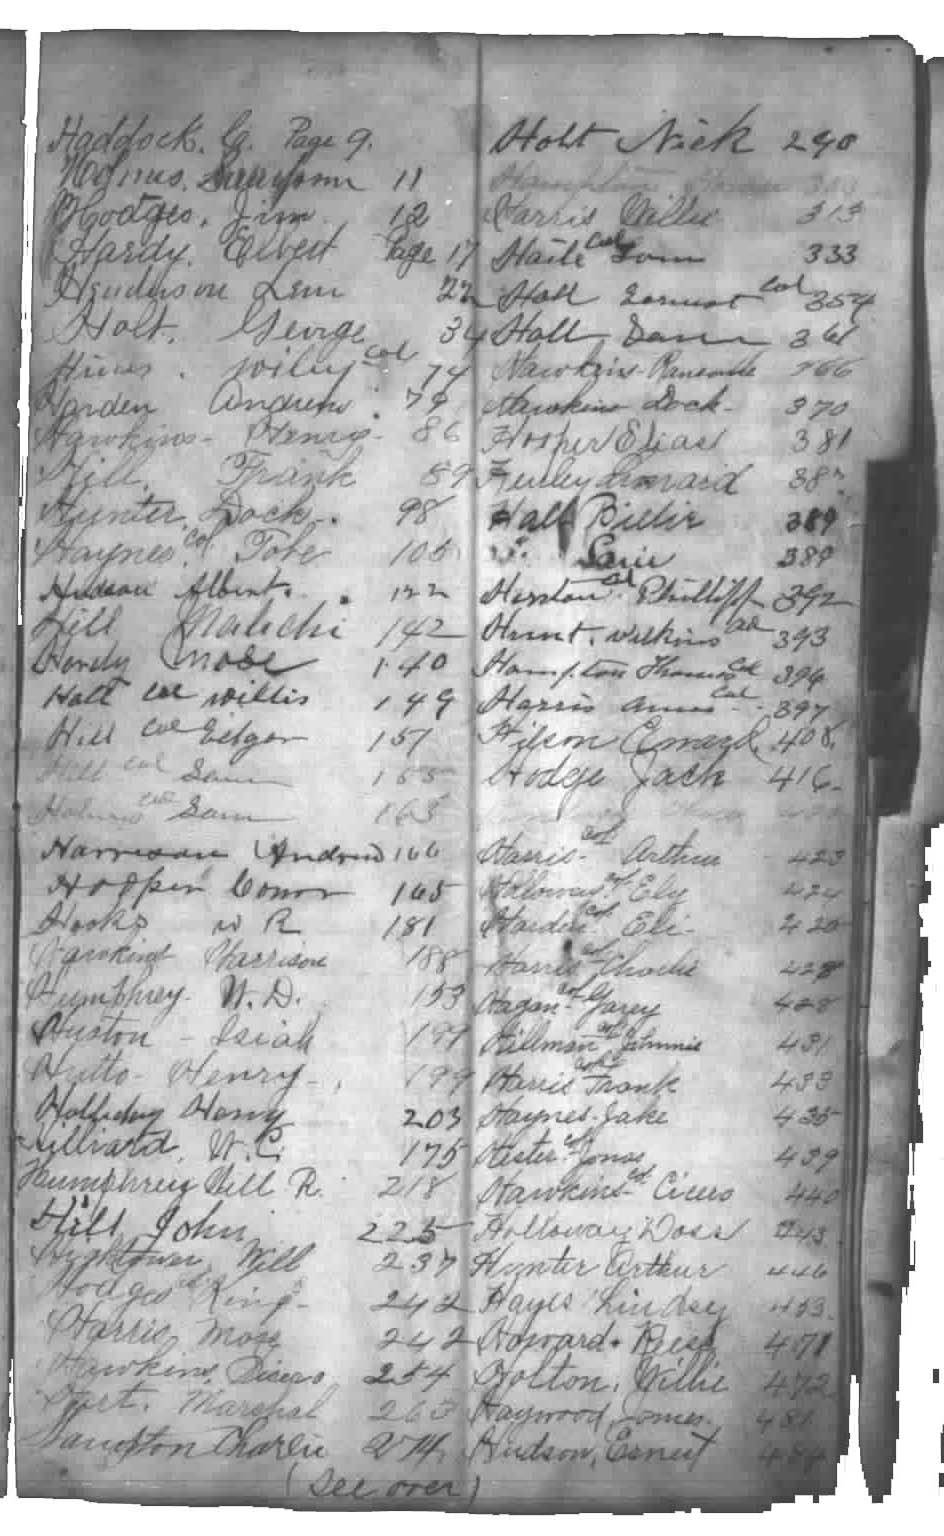 Haddock, Co. Page 9.
11
Hodges, Jim. 12
Hardy, Elbert Page 17
Henderson Lem 22
Holt, George 34
Hines, Wiley col 74
Harden Andrew. 79
Hawkins- Henry- 86
Hill, Frank 89
Hynter, Dock. 98
Haynes, col Tobe 105
Hudson Albert. 122
Hill Malichi 142
Hendy Mose 140
Holt col Willis 149
Hill col Edgar 151
Hill col Sam 155
Holmes col Sam 165
Harrison Andrew 166
Hooper Conor 165
Hooks W R 181
Hawkins Harrison 188
Humphrey- W.D. 153
Hyston - Isiah 199
Hutto- Henry- 199
Holliday Henry 203
Hilliard, W. C. 175
Humphrey Will R. 218
Hill John 225
Hightower, Will 237
Hodges col King- 242
Harris, Mose 242
Hawkins, Cicero 254
Hart, Marshal 263
Hampton Charlie 274
(See over)
Holt Nick 290
Hampton
Harris Willie 313
Haile col Tom 333
Holl Earnest col 354
Hall Dan 361
Hawkins- Ransome 366
Hawkins Dock- 370
Hosper Elias 381
Hurley Lenard 387
Hall Billie 389
" Sarie 389
Horston col Phillipp 392
Hunt, Wilkins col 393
Hampton Thomas col 396
Harris Amos col 397
Hilson Edward, 408.
Hodge Jack 416-
Harris- col Arthur 423
Holloway col Ely 424
Harden col Eli- 420
Harris col Charlie 428
Hagan- col Garey 428
Hillman col Johnnie 431
Harris col Frank 433
Haynes- Jake 435
Hester- col Jonas 439
Hawkins- col Cicero 440
Holloway Doss 443
Hynter Arthur 446
Hayes Lindsey 453
Howard- Reese 471
Holton, Willie 472
Haywood, James. 481
Hudson, Ernest 484